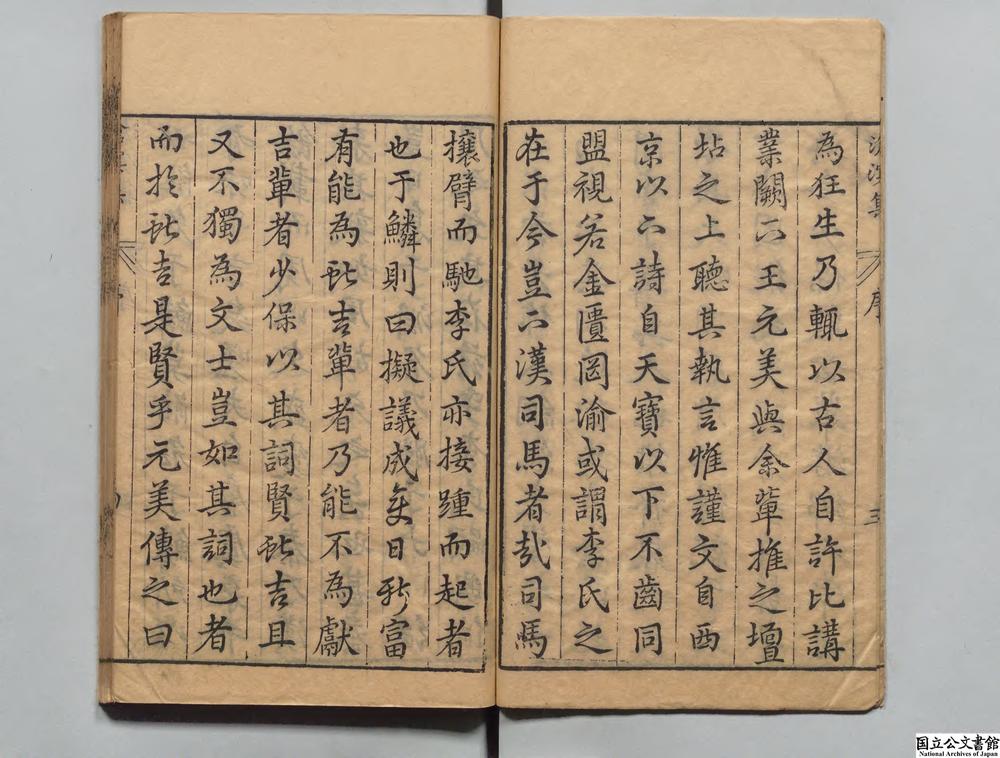 滄溟集 序 三
為狂生乃輒以古人自許比講
業闕下王元美與余輩推之壇
坫之上聽其執言惟謹文自西
京以下詩自天寶以下不齒同
盟視若金匱罔渝或謂李氏之
在于今豈下漢司馬者哉司馬
攘臂而馳李氏亦接踵而起者
也于鱗則曰擬議成變日新富
有能為獻吉輩者乃能不為獻
吉輩者少保以其詞賢獻吉且
又不獨為文士豈如其詞也者
而於獻吉是賢乎元美傳之曰
国立公文書館
National Archives of Japan